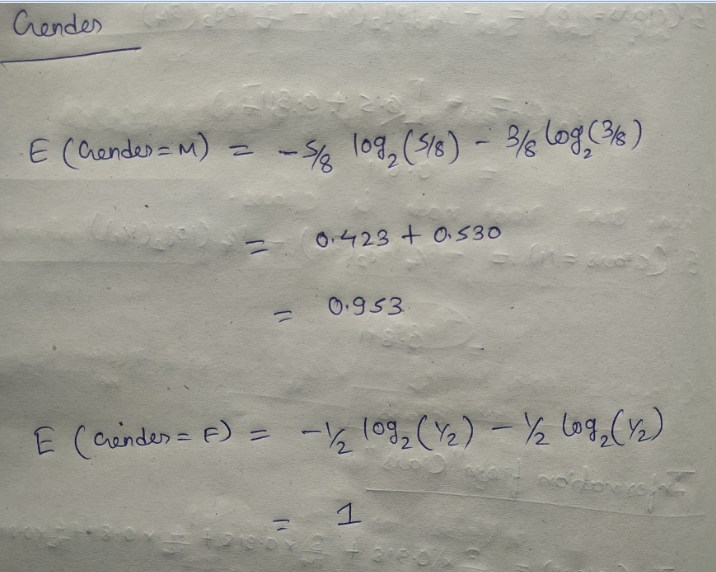 Gender
E (Gender = M) = - 5/8 log₂ (5/8) - 3/8 log₂ (3/8)
= 0.423 + 0.530
= 0.953
E (Gender = F) = - 1/2 log₂ (1/2) - 1/2 log₂ (1/2)
= 1